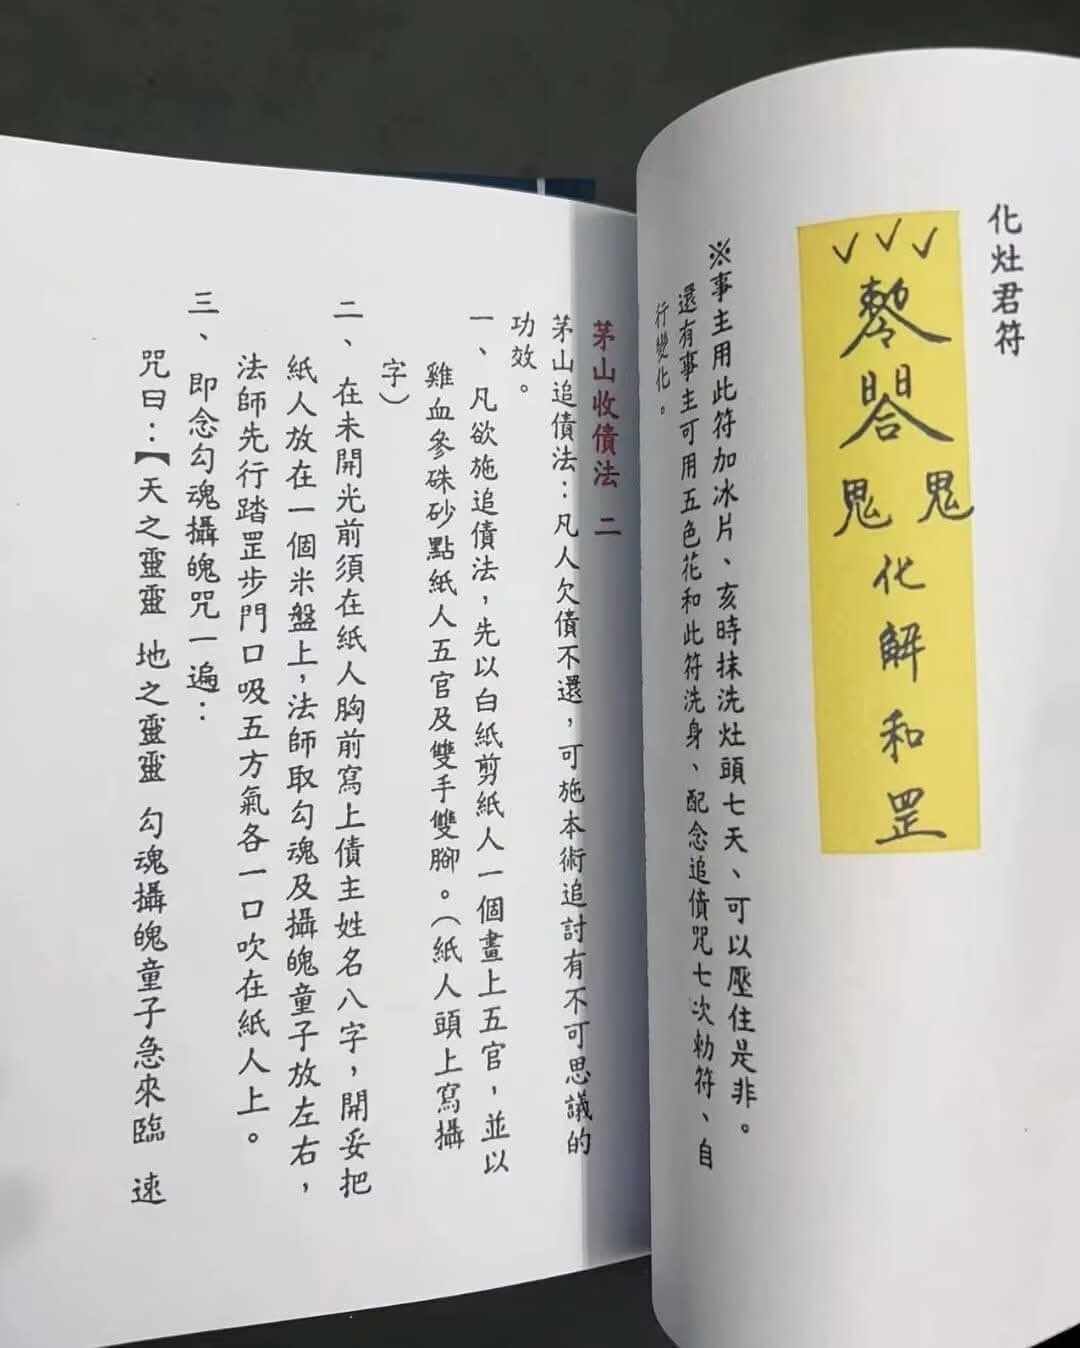 化灶君符
鬼鬼
化解和罡
※事主用此符加冰片、亥時抹洗灶頭七天、可以壓住是非。
還有事主可用五色花和此符洗身、配念追債咒七次勅符、自
行變化。
茅山收債法 二
茅山追債法：凡人欠債不還，可施本術追討有不可思議的
功效。
一、凡欲施追債法，先以白紙剪紙人一個畫上五官，並以
雞血參硃砂點紙人五官及雙手雙腳。（紙人頭上寫攝
字）
二、在未開光前須在紙人胸前寫上債主姓名八字，開妥把
紙人放在一個米盤上，法師取勾魂及攝魄童子放左右，
法師先行踏罡步門口吸五方氣各一口吹在紙人上。
三、即念勾魂攝魄咒一遍：
咒曰：【天之靈靈 地之靈靈 勾魂攝魄童子急來臨 速